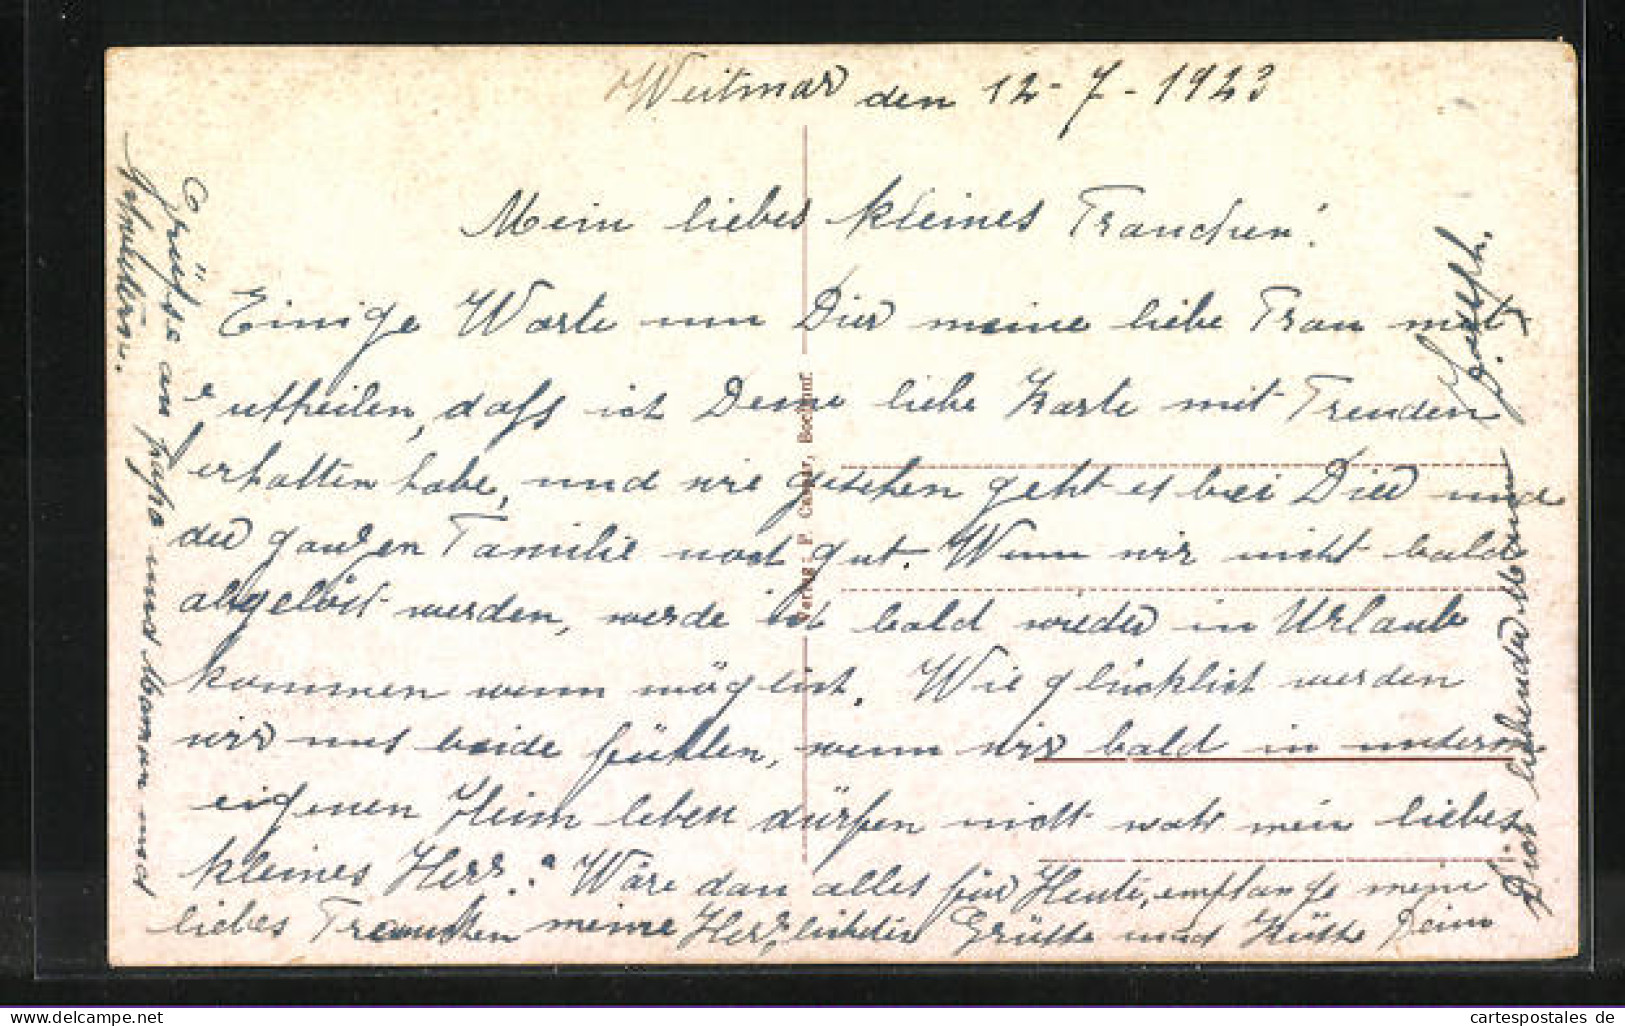 Weitmar den 12-7-1923
Mein liebes kleines Frauchen!
Einige Worte um Dir meine liebe Frau mit
zutheilen, daß ich Deine liebe Karte mit Freuden
erhalten habe, und wie gesehen geht es bei Dir und
der ganzen Familie noch gut. Wenn wir nicht bald
abgelöst werden, werde ich bald wieder in Urlaub
kommen wenn möglich. Wie glücklich werden
wir uns beide fühlen, wenn wir bald in unserm
eigenen Heim leben dürfen nicht wahr mein liebes
kleines Herz? Wäre dan alles für Heute, empfange mein
liebes Frauchen meine Herzlichsten Grüße und Küße Dein
Dich liebender Mann
Joseph.
Grüße an papa und Maman und
Verlag: P. Bochum.
cartespostales de
www.delcampe.net